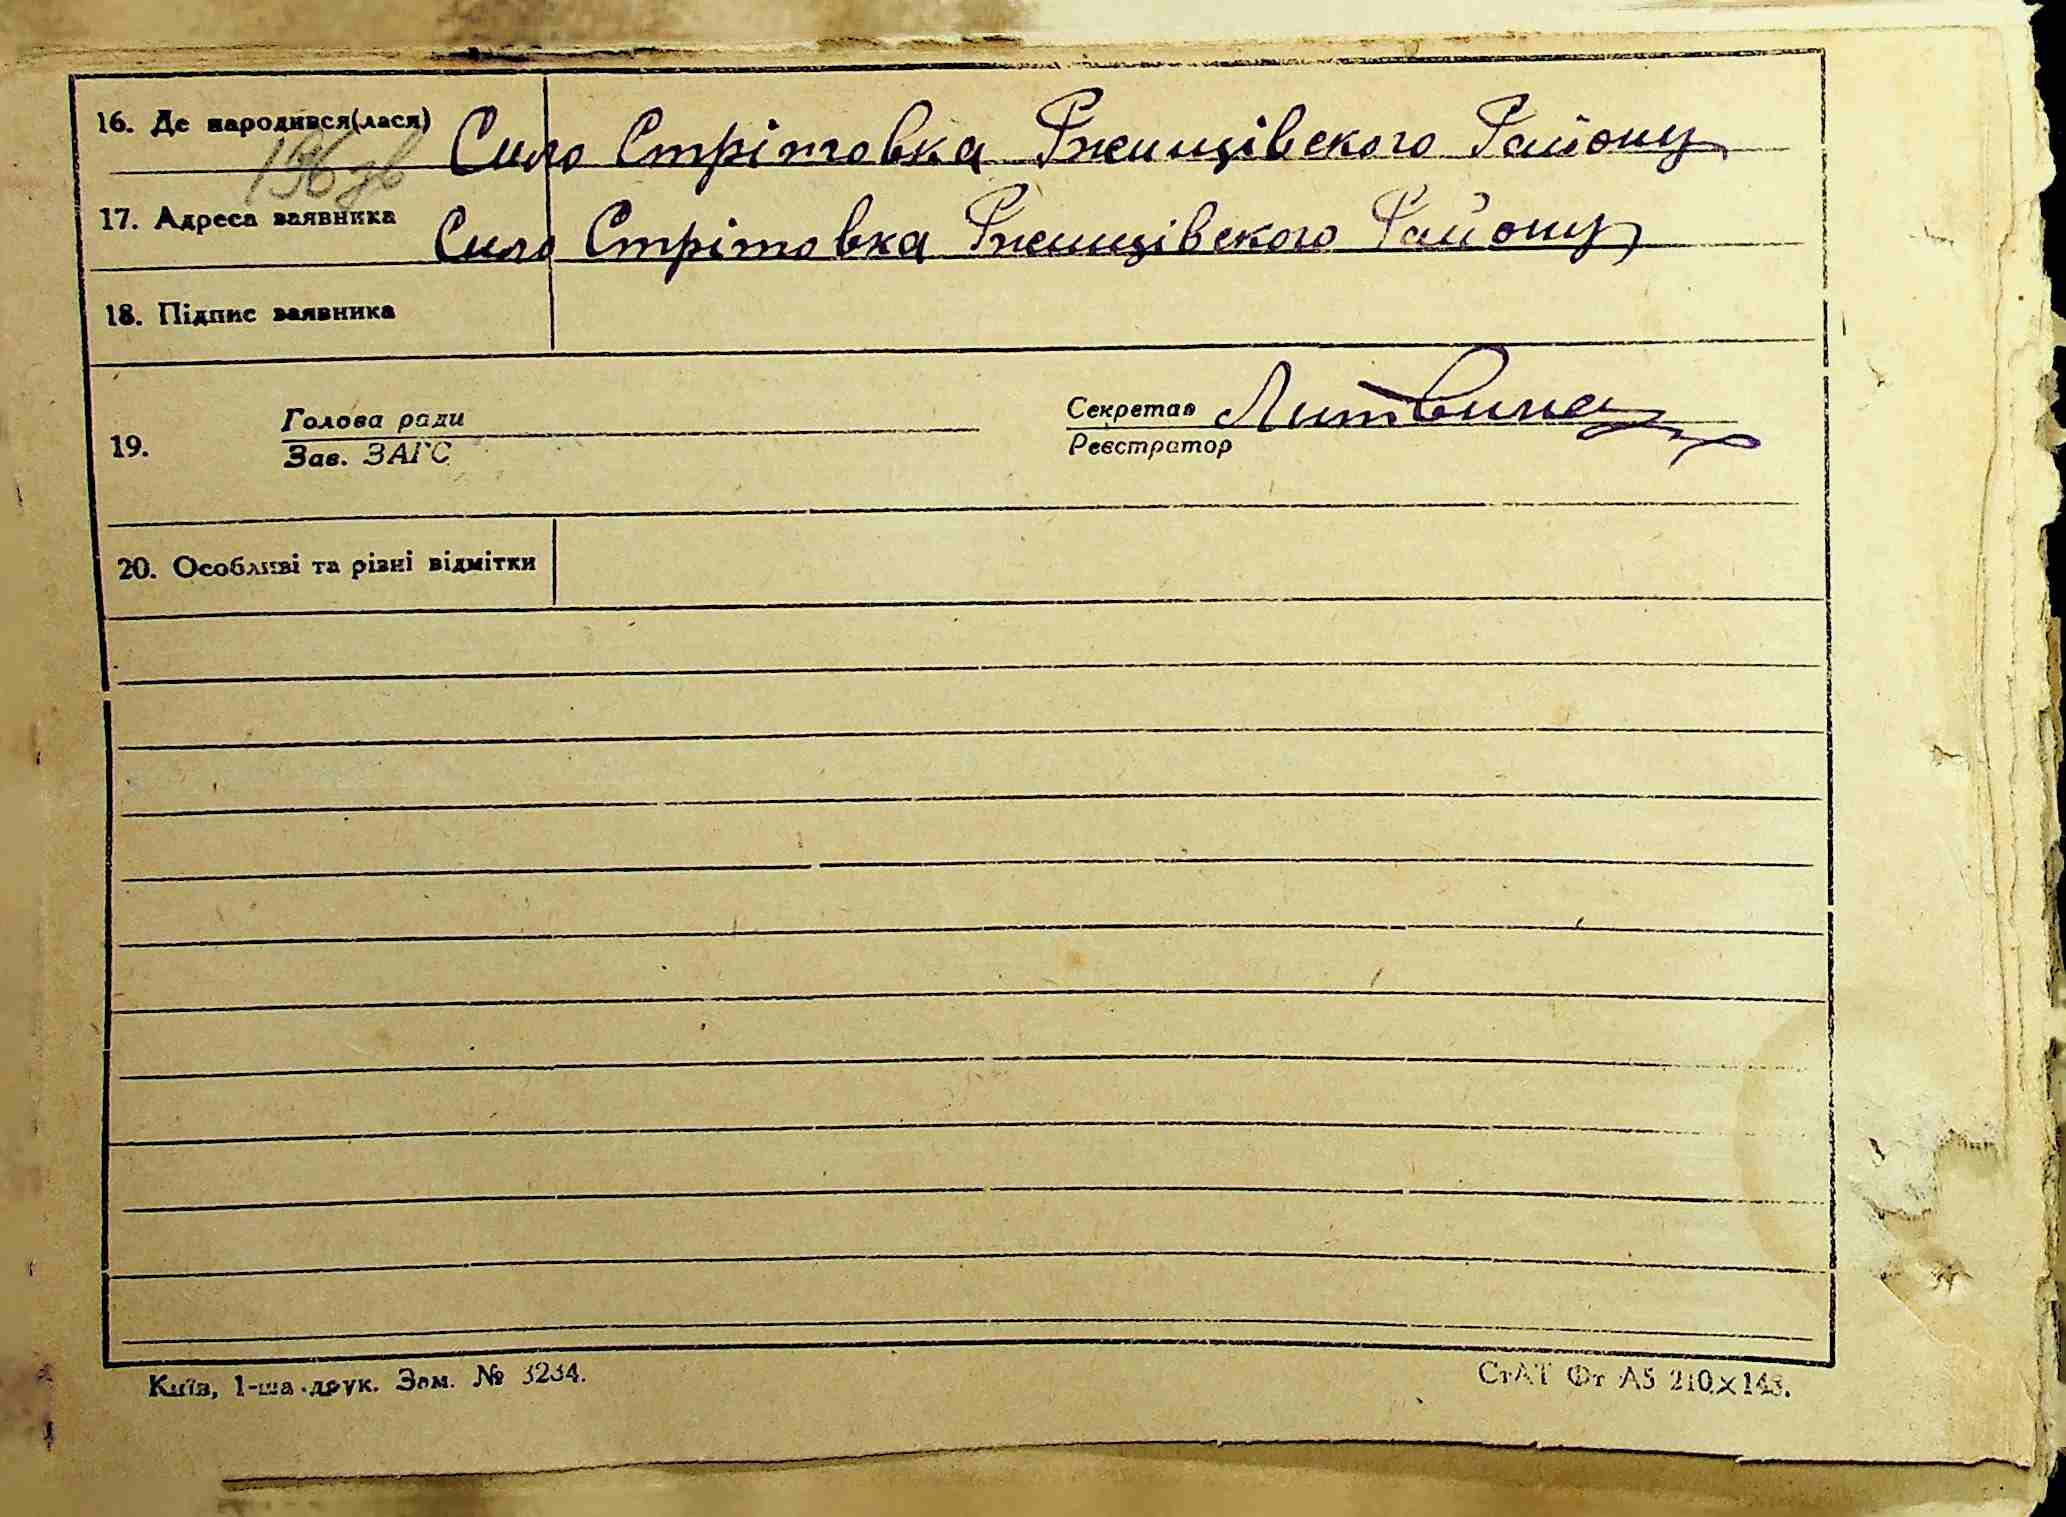 16. Де народився(лася) Село Стрітовка Ржищівского Району
196 зв
17. Адреса заявника Село Стрітовка Ржищівского Району
18. Підпис заявника
Голова ради Секретар Литвинец
19.
Зав. ЗАГС Реєстратор
20. Особливі та різні відмітки
Київ, 1-ша друк. Зам. № 3234. СтАТ Фт А5 210×148.